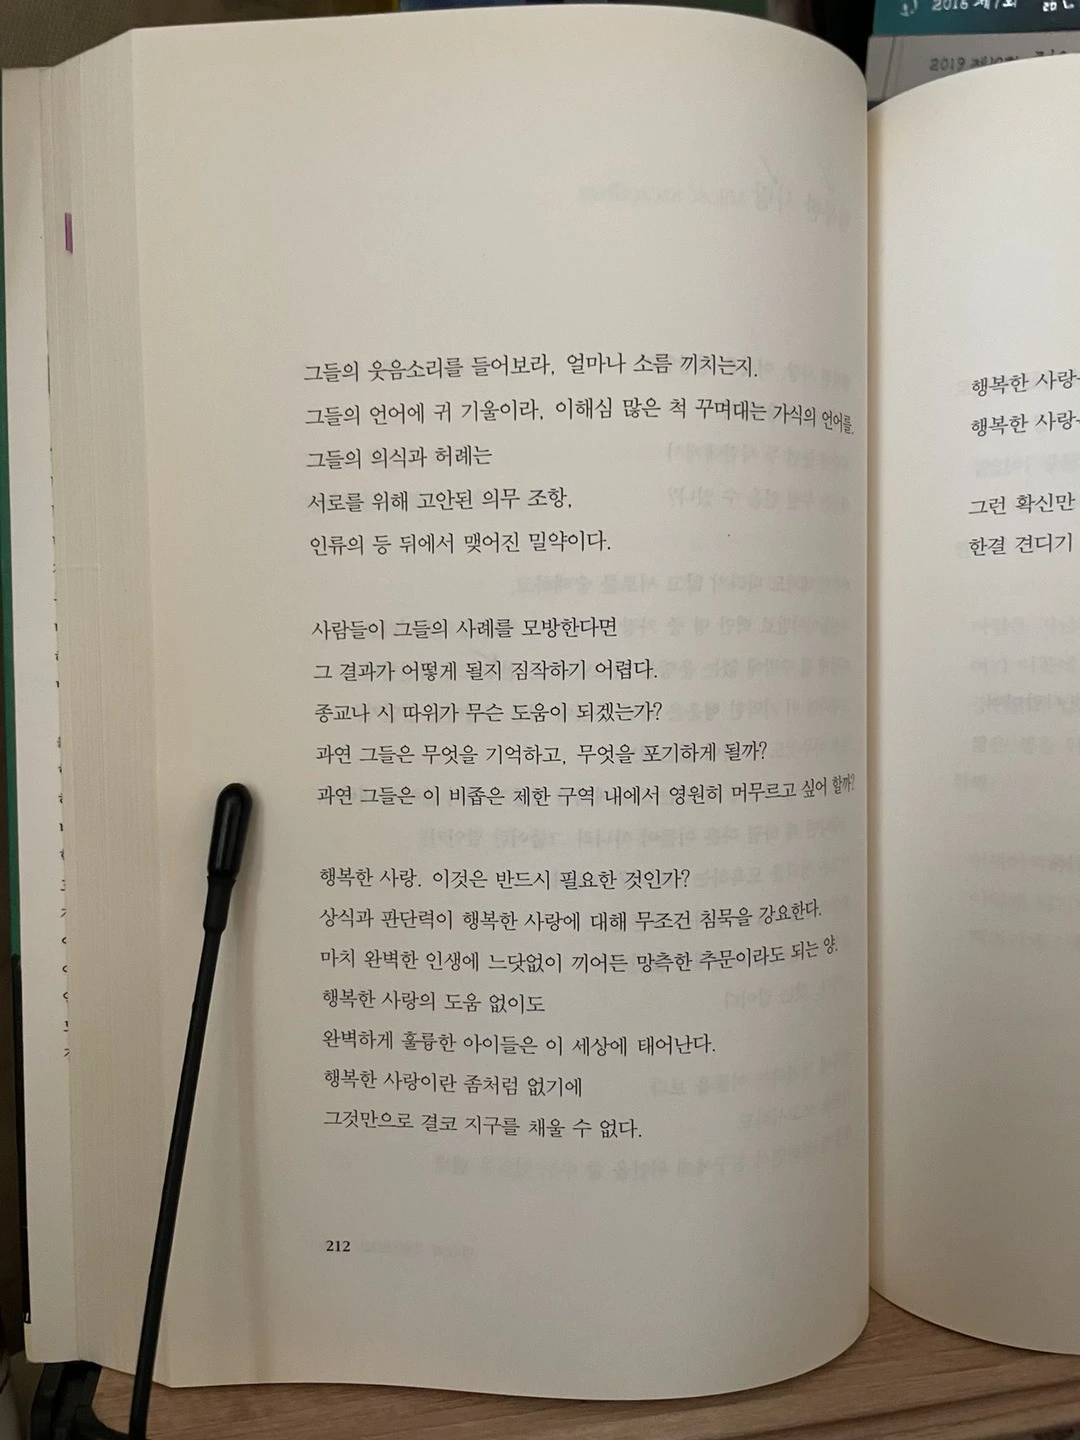 2016 제7회 젊은
2019 제
그들의 웃음소리를 들어보라, 얼마나 소름 끼치는지.
그들의 언어에 귀 기울이라, 이해심 많은 척 꾸며대는 가식의 언어를.
그들의 의식과 허례는
서로를 위해 고안된 의무 조항,
인류의 등 뒤에서 맺어진 밀약이다.
사람들이 그들의 사례를 모방한다면
그 결과가 어떻게 될지 짐작하기 어렵다.
종교나 시 따위가 무슨 도움이 되겠는가?
과연 그들은 무엇을 기억하고, 무엇을 포기하게 될까?
과연 그들은 이 비좁은 제한 구역 내에서 영원히 머무르고 싶어 할까?
행복한 사랑. 이것은 반드시 필요한 것인가?
상식과 판단력이 행복한 사랑에 대해 무조건 침묵을 강요한다.
마치 완벽한 인생에 느닷없이 끼어든 망측한 추문이라도 되는 양.
행복한 사랑의 도움 없이도
완벽하게 훌륭한 아이들은 이 세상에 태어난다.
행복한 사랑이란 좀처럼 없기에
그것만으로 결코 지구를 채울 수 없다.
212
행복한 사랑
행복한 사랑
그런 확신만
한결 견디기